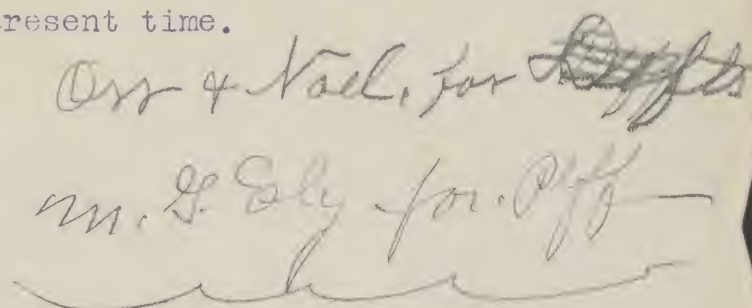 resent time.
Orr & Noel, for Deffts
M. G. Ely for. Plff